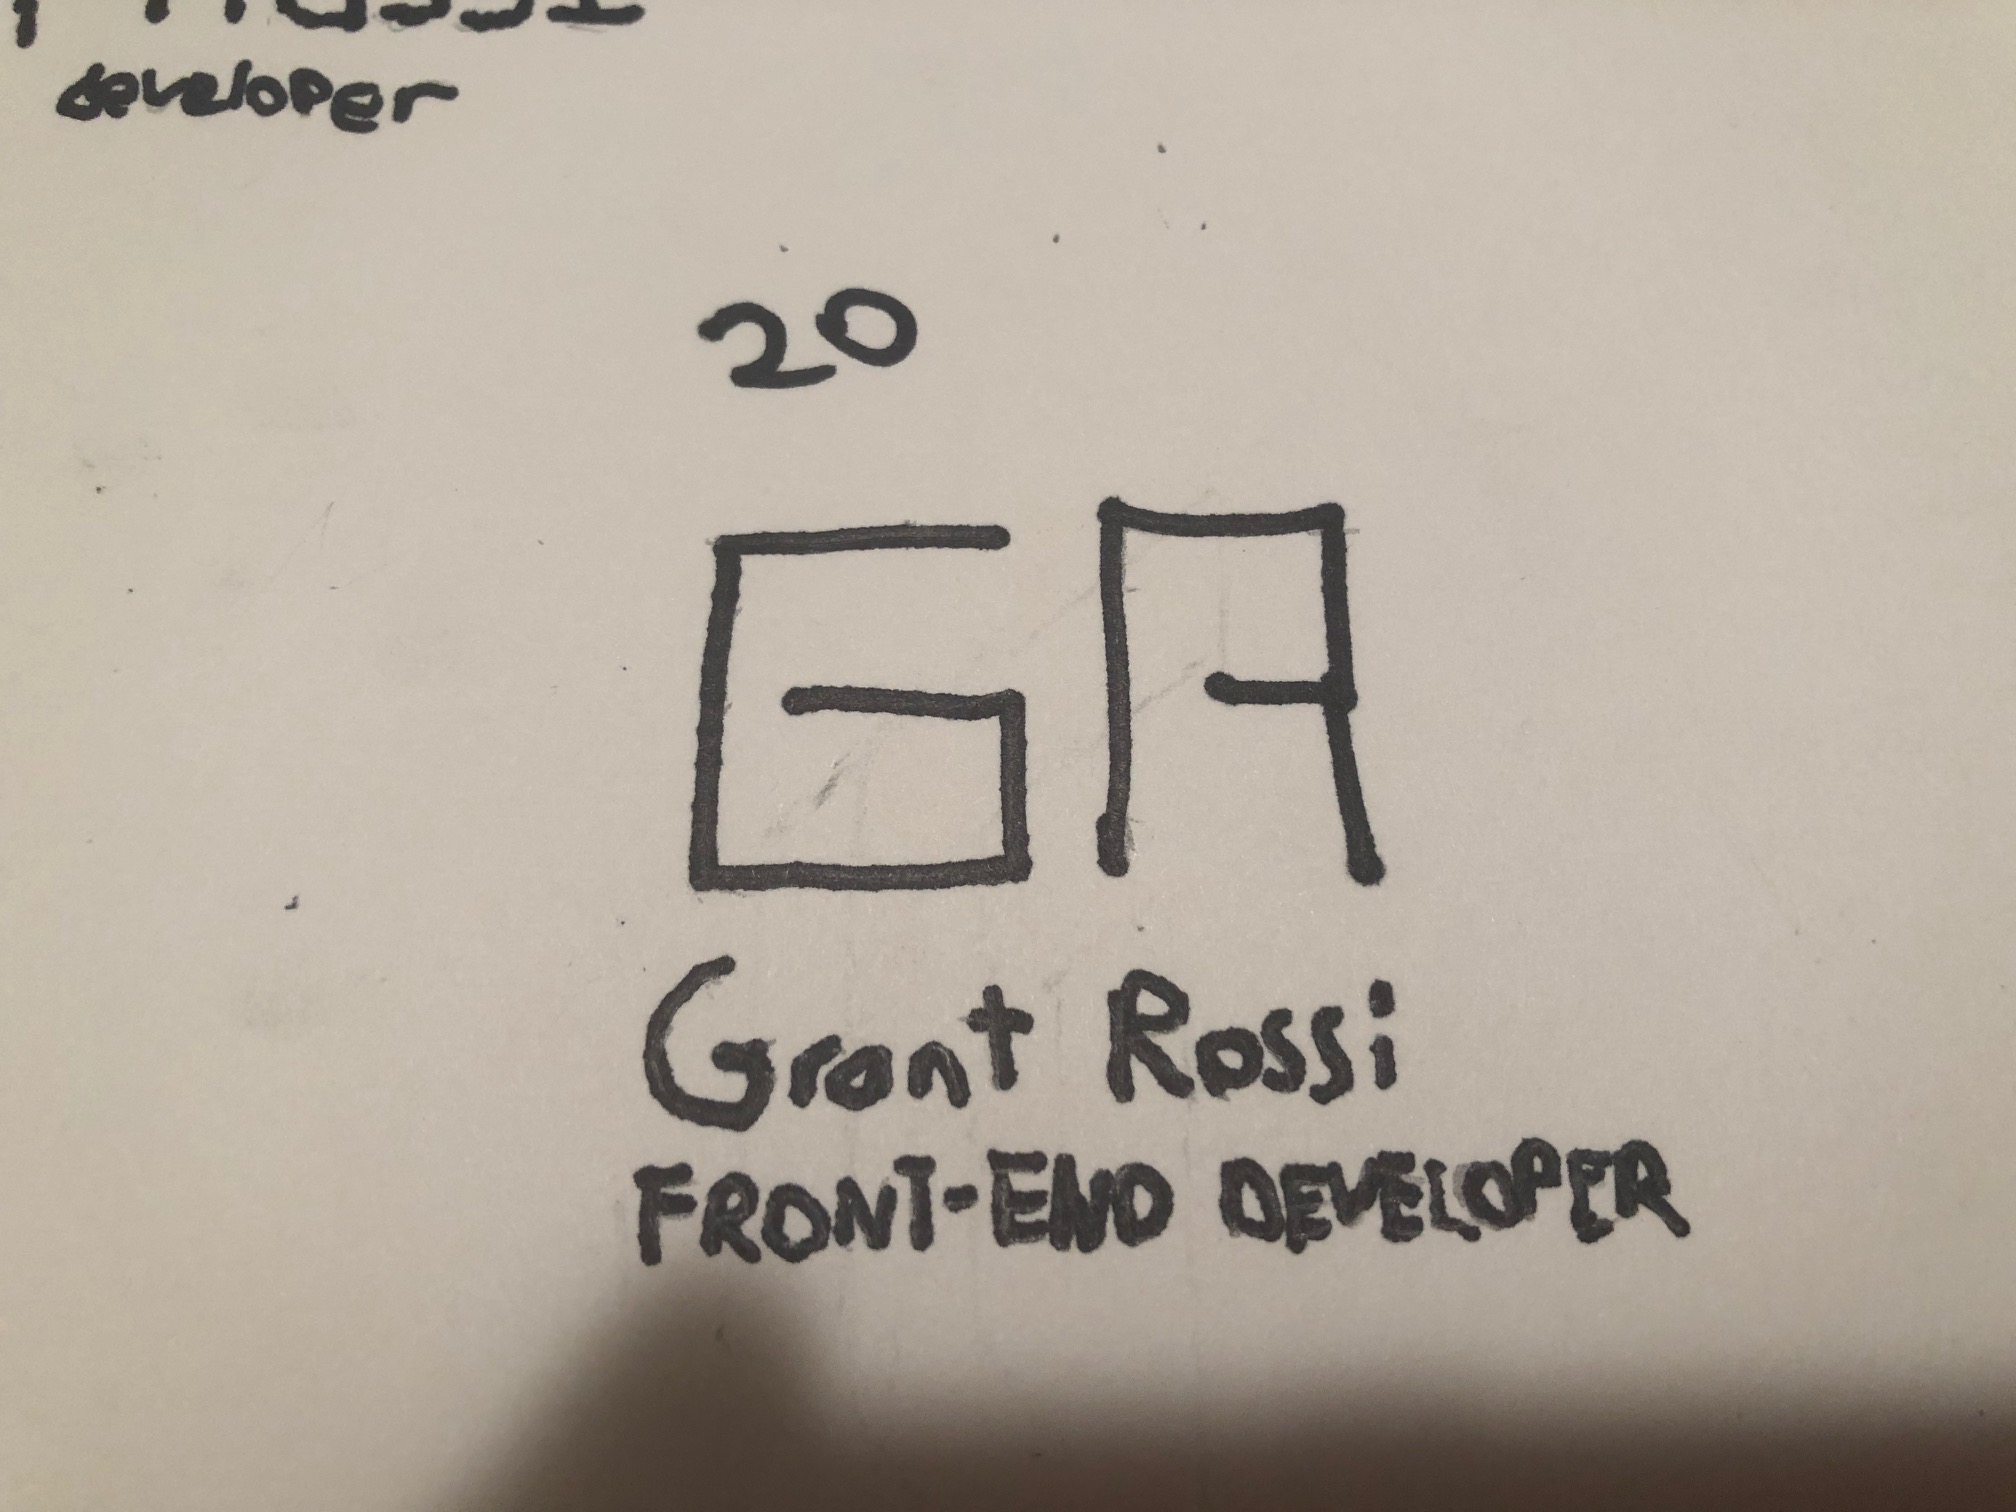 developer
20
GR
Grant Rossi
FRONT-END DEVELOPER